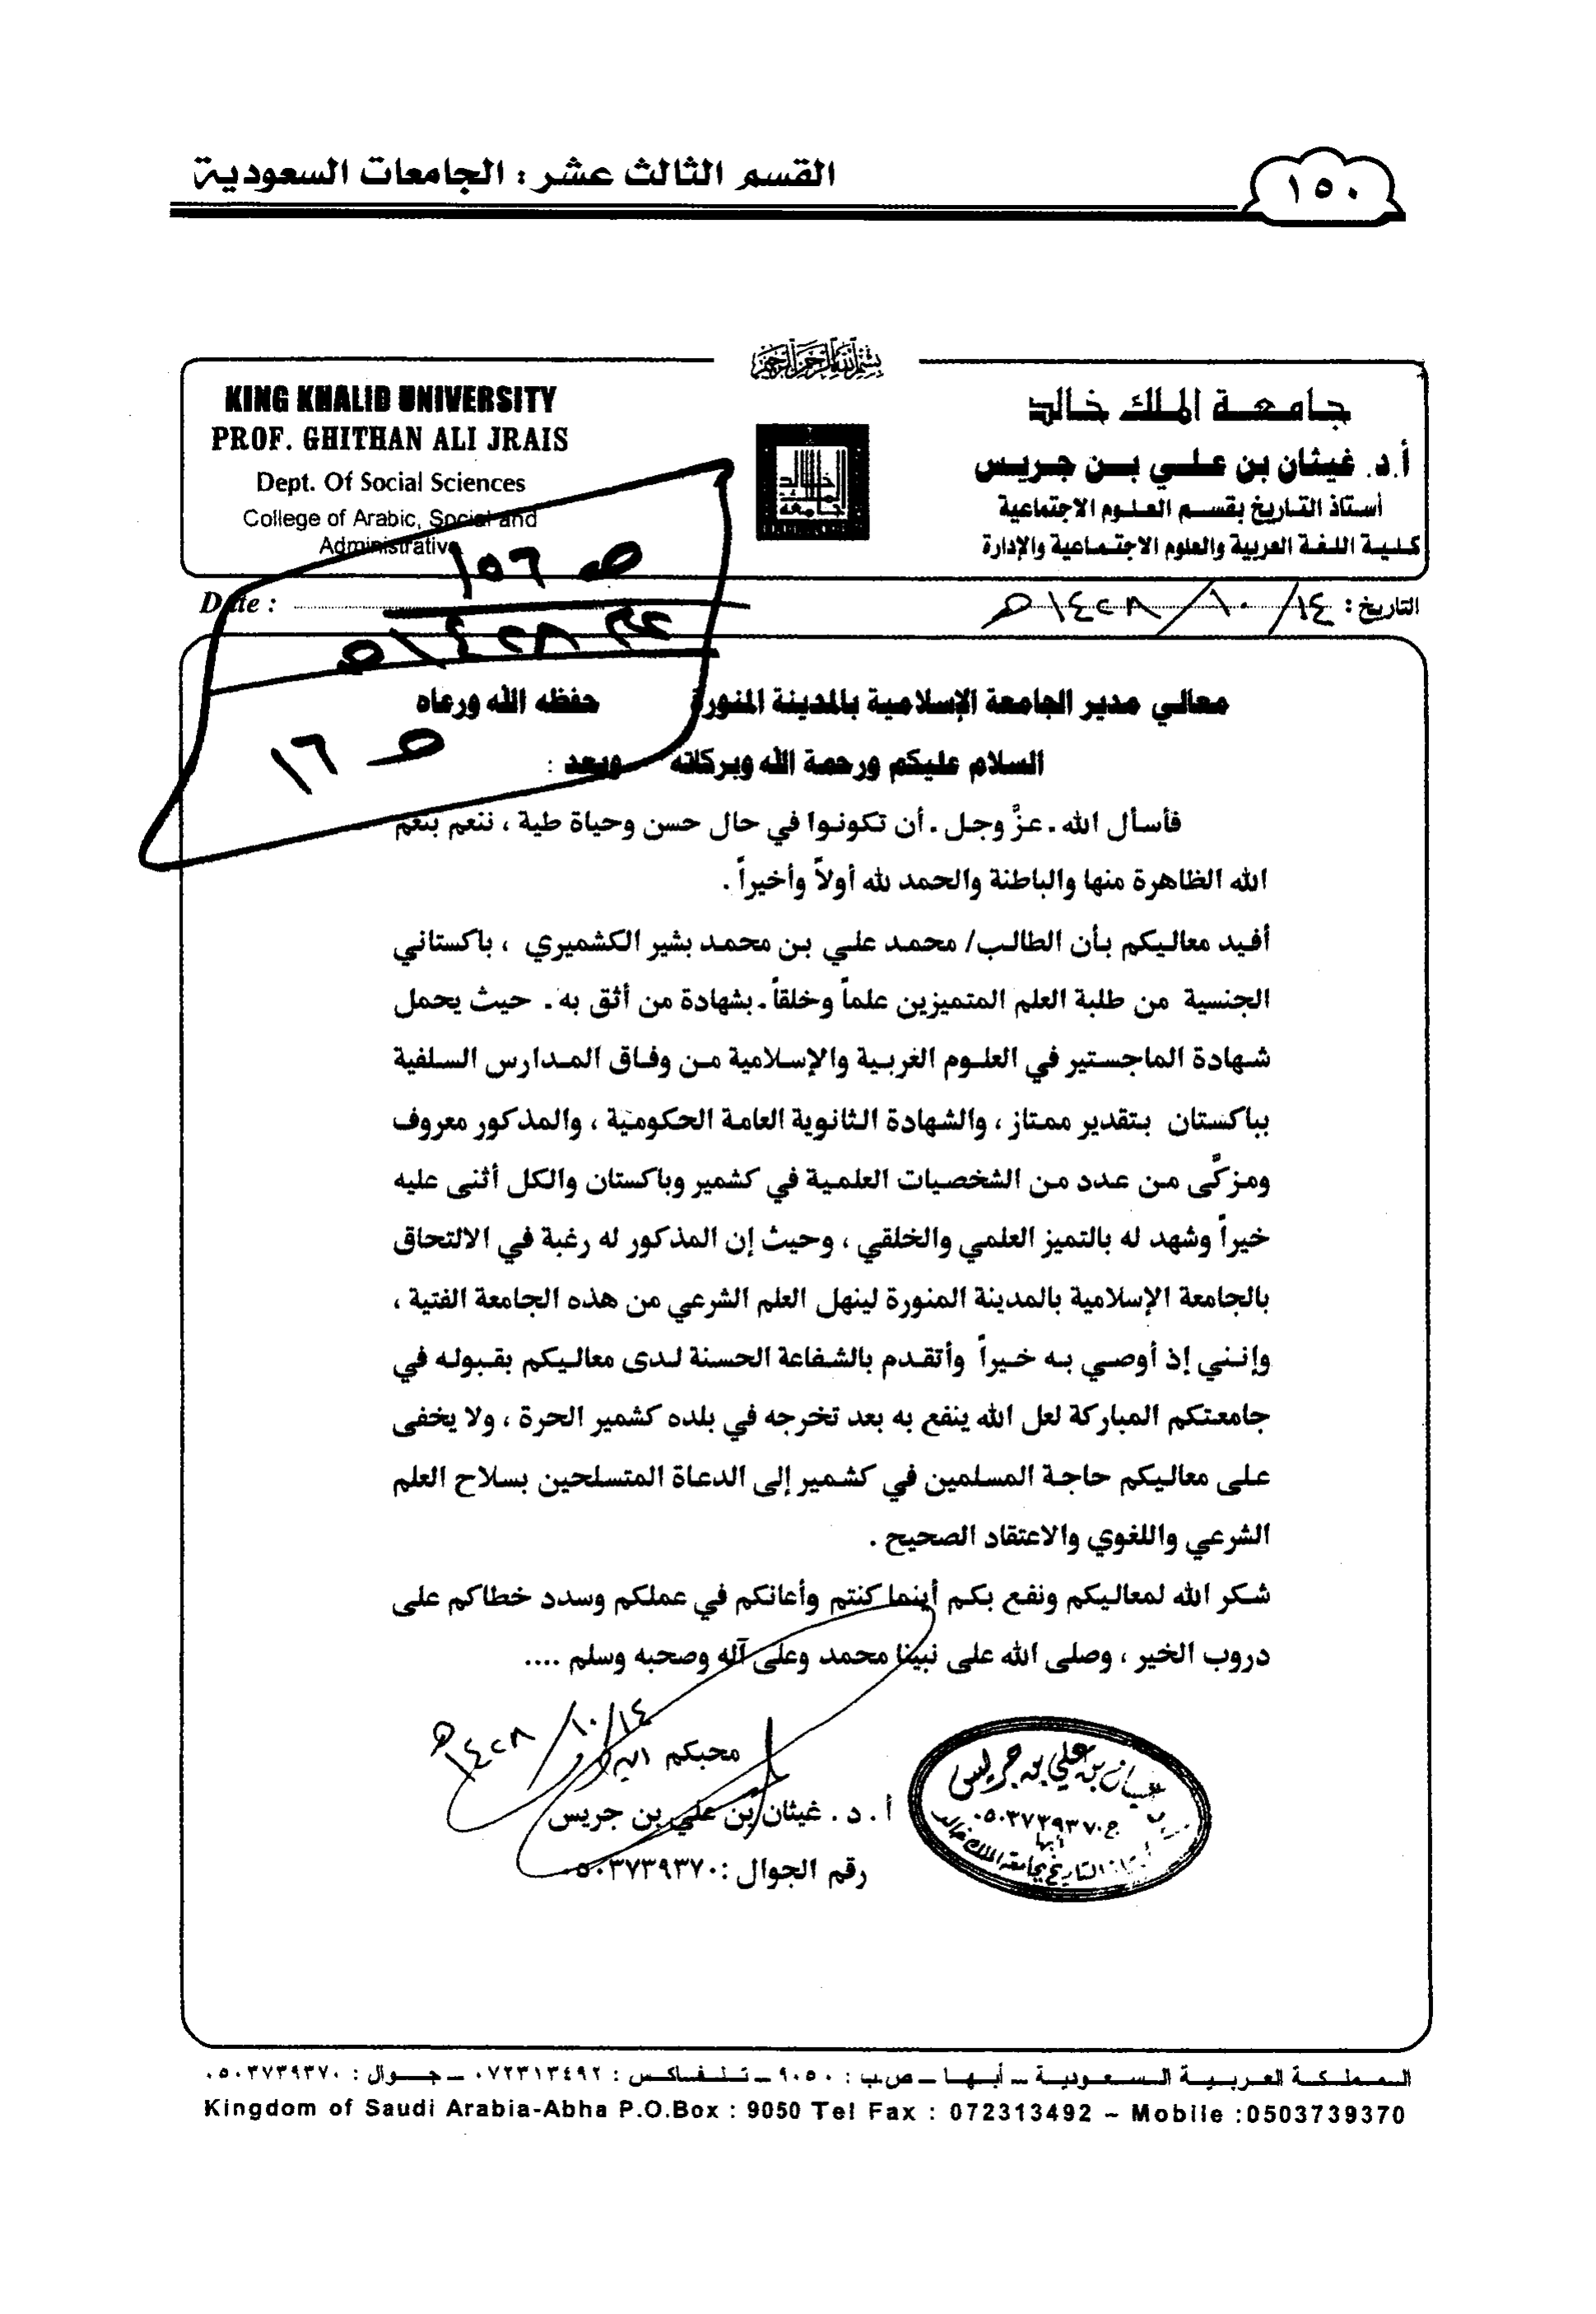 القسم الثالث عشر : الجامعات السعودية
١٥٠
بسم الله الرحمن الرحيم
KING KHALID UNIVERSITY
PROF. GHITHAN ALI JRAIS
Dept. Of Social Sciences
College of Arabic, Social and
Administrative
جامعة الملك خالد
أ.د. غيثان بن علي بن جريس
أستاذ التاريخ بقسم العلوم الاجتماعية
كلية اللغة العربية والعلوم الاجتماعية والإدارة
Date :
التاريخ : ١٤/ ١٠/ ١٤٢٨هـ
ص ١٥٦
١٤٢٨هـ
ص ١٦
معالي مدير الجامعة الإسلامية بالمدينة المنورة حفظه الله ورعاه
السلام عليكم ورحمة الله وبركاته وبعد :
فأسأل الله . عزَّ وجل . أن تكونوا في حال حسن وحياة طية ، ننعم بنعم
الله الظاهرة منها والباطنة والحمد لله أولاً وأخيراً .
أفيد معاليكم بأن الطالب/ محمد علي بن محمد بشير الكشميري ، باكستاني
الجنسية من طلبة العلم المتميزين علماً وخلقاً . بشهادة من أثق به . حيث يحمل
شهادة الماجستير في العلوم الغربية والإسلامية من وفاق المدارس السلفية
بباكستان بتقدير ممتاز ، والشهادة الثانوية العامة الحكومية ، والمذكور معروف
ومزكَّى من عدد من الشخصيات العلمية في كشمير وباكستان والكل أثنى عليه
خيراً وشهد له بالتميز العلمي والخلقي ، وحيث إن المذكور له رغبة في الالتحاق
بالجامعة الإسلامية بالمدينة المنورة لينهل العلم الشرعي من هذه الجامعة الفتية ،
وإنني إذ أوصي به خيراً وأتقدم بالشفاعة الحسنة لدى معاليكم بقبوله في
جامعتكم المباركة لعل الله ينفع به بعد تخرجه في بلده كشمير الحرة ، ولا يخفى
على معاليكم حاجة المسلمين في كشمير إلى الدعاة المتسلحين بسلاح العلم
الشرعي واللغوي والاعتقاد الصحيح .
شكر الله لمعاليكم ونفع بكم أينما كنتم وأعانكم في عملكم وسدد خطاكم على
دروب الخير ، وصلى الله على نبينا محمد وعلى آله وصحبه وسلم ....
١٤/ ١٠/ ١٤٢٨هـ
محبكم
أ . د . غيثان بن علي بن جريس
رقم الجوال :٠٥٠٣٧٣٩٣٧٠
بن علي بن جريس
ج ٠٥٠٣٧٣٩٣٧٠
أبها
التاريخ بجامعة الملك خالد
المملكة العربية السعودية – أبها – ص.ب : ٩٠٥٠ – تلفاكس : ٠٧٢٣١٣٤٩٢ – جوال : ٠٥٠٣٧٣٩٣٧٠
Kingdom of Saudi Arabia-Abha P.O.Box : 9050 Tel Fax : 072313492 – Mobile :0503739370